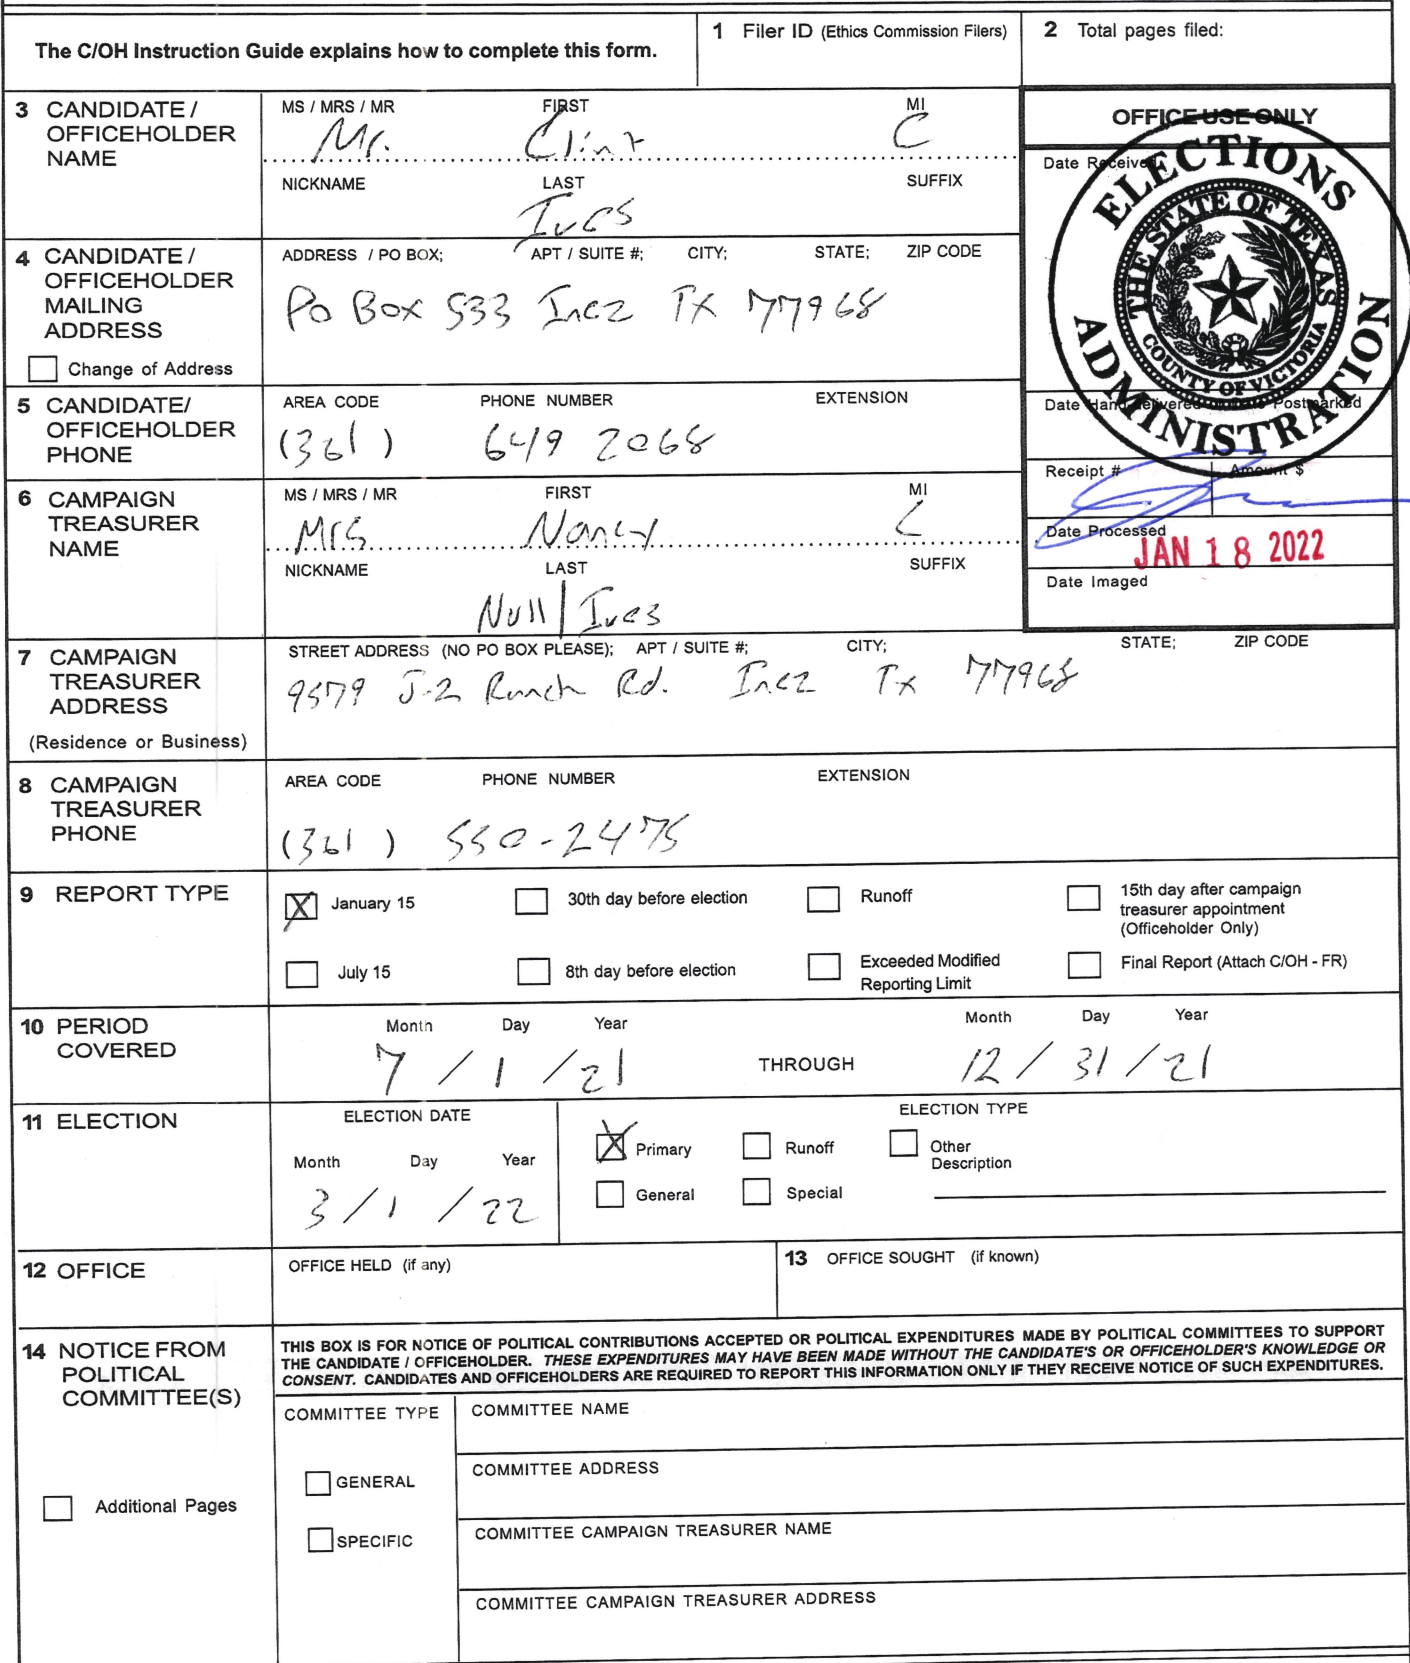 The C/OH Instruction Guide explains how to complete this form.
1 Filer ID (Ethics Commission Filers)
2 Total pages filed:
3 CANDIDATE / OFFICEHOLDER NAME
MS / MRS / MR FIRST MI
Mr. Clint C
NICKNAME LAST SUFFIX
Ives
OFFICE USE ONLY
Date Received
ELECTIONS ADMINISTRATION
THE STATE OF TEXAS
COUNTY OF VICTORIA
Date Hand-delivered or Date Postmarked
Receipt # Amount $
Date Processed
JAN 18 2022
Date Imaged
4 CANDIDATE / OFFICEHOLDER MAILING ADDRESS
Change of Address
ADDRESS / PO BOX; APT / SUITE #; CITY; STATE; ZIP CODE
Po Box 533 Inez TX 77968
5 CANDIDATE/ OFFICEHOLDER PHONE
AREA CODE PHONE NUMBER EXTENSION
(361) 649 2068
6 CAMPAIGN TREASURER NAME
MS / MRS / MR FIRST MI
Mrs Nancy C
NICKNAME LAST SUFFIX
Null/Ives
7 CAMPAIGN TREASURER ADDRESS
(Residence or Business)
STREET ADDRESS (NO PO BOX PLEASE); APT / SUITE #; CITY; STATE; ZIP CODE
9579 J-2 Ranch Rd. Inez Tx 77968
8 CAMPAIGN TREASURER PHONE
AREA CODE PHONE NUMBER EXTENSION
(361) 550-2475
9 REPORT TYPE
X January 15
30th day before election
Runoff
15th day after campaign treasurer appointment (Officeholder Only)
July 15
8th day before election
Exceeded Modified Reporting Limit
Final Report (Attach C/OH - FR)
10 PERIOD COVERED
Month Day Year Month Day Year
7 / 1 / 21 THROUGH 12 / 31 / 21
11 ELECTION
ELECTION DATE
Month Day Year
3 / 1 / 22
ELECTION TYPE
X Primary
Runoff
Other Description
General
Special
12 OFFICE
OFFICE HELD (if any)
13 OFFICE SOUGHT (if known)
14 NOTICE FROM POLITICAL COMMITTEE(S)
Additional Pages
THIS BOX IS FOR NOTICE OF POLITICAL CONTRIBUTIONS ACCEPTED OR POLITICAL EXPENDITURES MADE BY POLITICAL COMMITTEES TO SUPPORT
THE CANDIDATE / OFFICEHOLDER. THESE EXPENDITURES MAY HAVE BEEN MADE WITHOUT THE CANDIDATE'S OR OFFICEHOLDER'S KNOWLEDGE OR
CONSENT. CANDIDATES AND OFFICEHOLDERS ARE REQUIRED TO REPORT THIS INFORMATION ONLY IF THEY RECEIVE NOTICE OF SUCH EXPENDITURES.
COMMITTEE TYPE
GENERAL
SPECIFIC
COMMITTEE NAME
COMMITTEE ADDRESS
COMMITTEE CAMPAIGN TREASURER NAME
COMMITTEE CAMPAIGN TREASURER ADDRESS